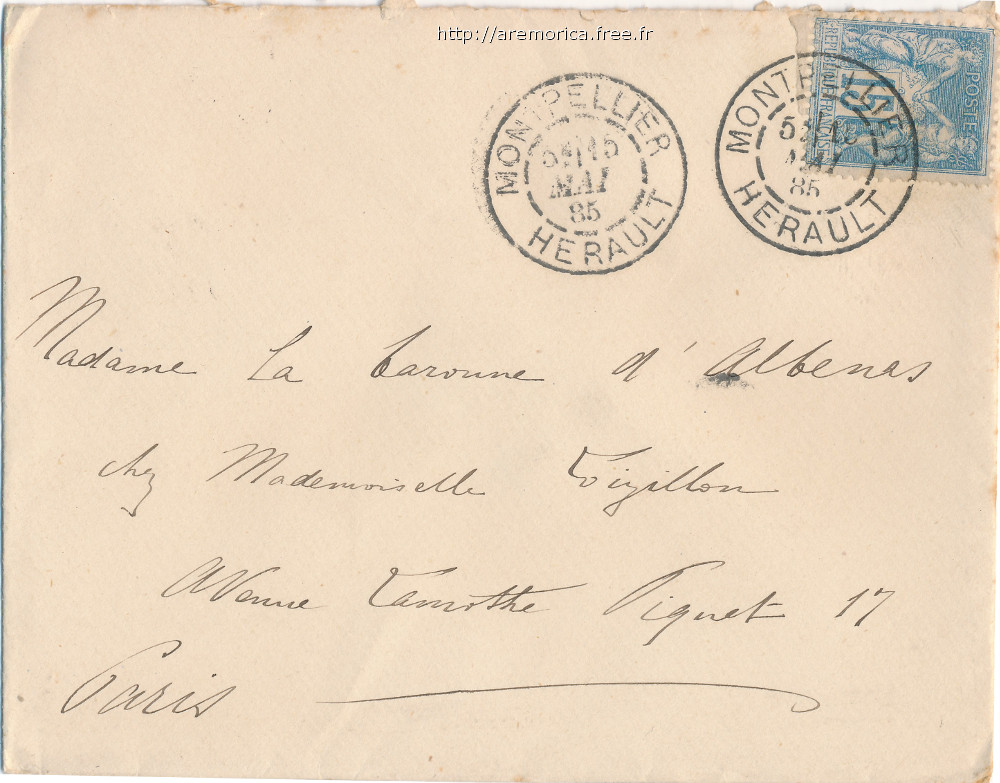 http://aremorica.free.fr
REPUBLIQUE FRANÇAISE
15
POSTES
MONTPELLIER
MAI
85
HERAULT
MONTPELLIER
MAI
85
HERAULT
Madame la baronne d'Albenas
chez Mademoiselle
Avenue Lamothe Piquet 17
Paris